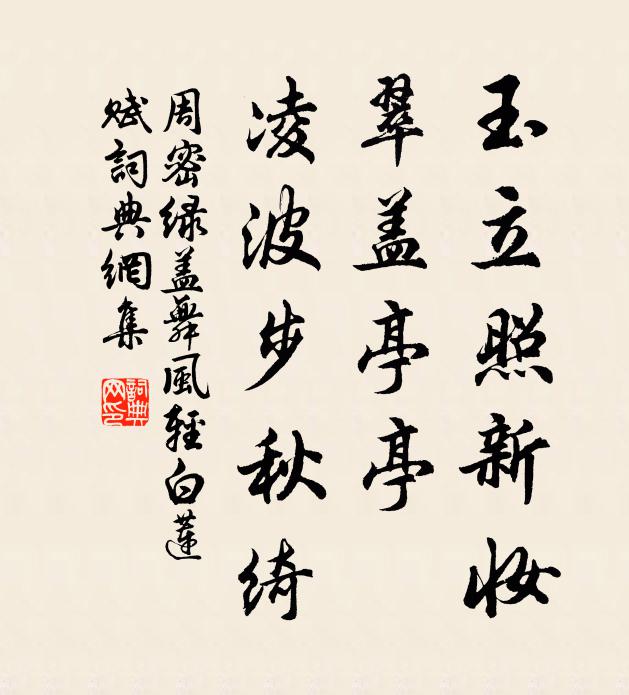 玉立照新妆
翠盖亭亭
凌波步秋绮
周密绿盖舞风轻白莲
赋詞典網集
詞典网印